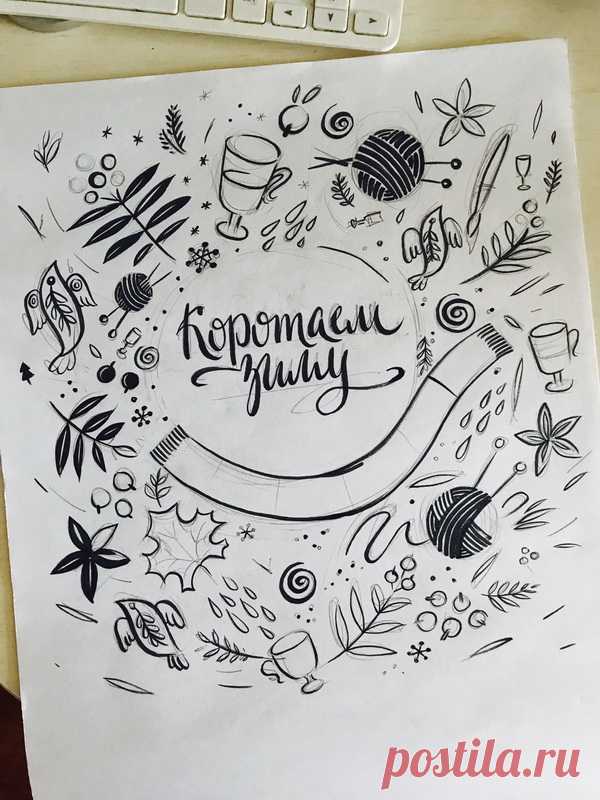 Коротаем
зиму
postila.ru